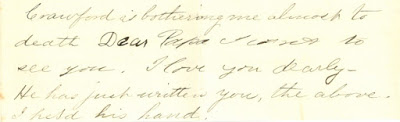 Crawford is bothering me almost to
death Dear Papa I want to
see you. I love you dearly –
He has just written you, the above.
I held his hand.